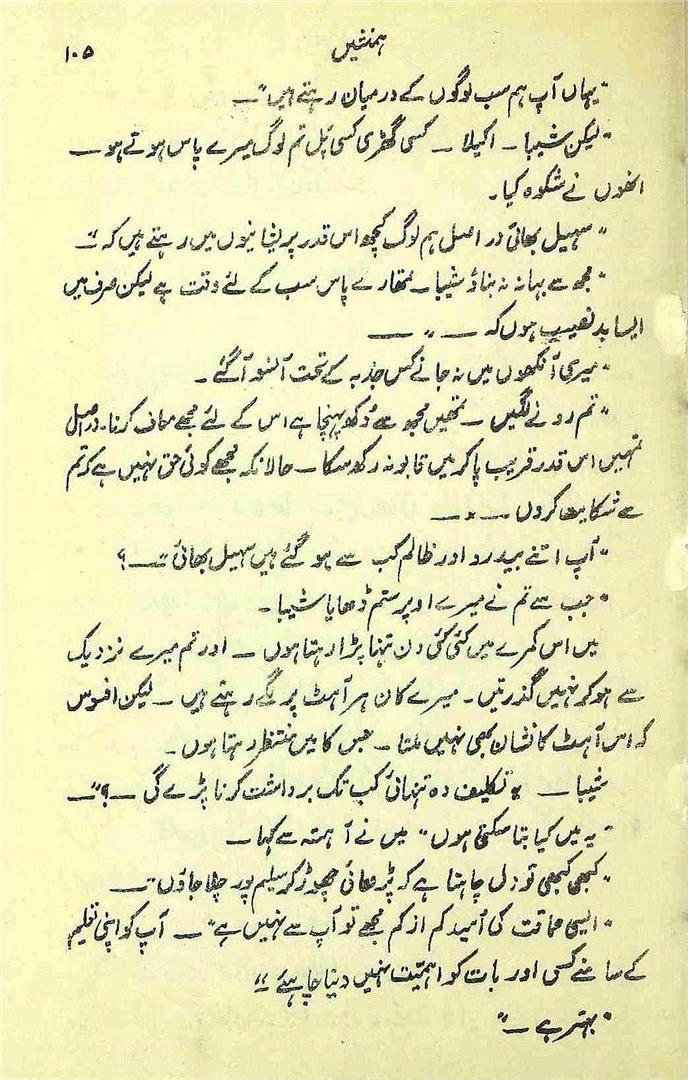 ہمنشیں ۱۰۵
"یہاں آپ ہم سب لوگوں کے درمیان رہتے ہیں" —
"لیکن شیبا — اکیلا — کسی گھڑی کسی پَل تم لوگ میرے پاس ہوتے ہو —
انھوں نے شکوہ کیا۔
"سہیل بھائی در اصل ہم لوگ کچھ اس قدر پریشانیوں میں رہتے ہیں کہ —"
"مجھ سے بہانہ نہ بناؤ شیبا — تمھارے پاس سب کے لئے وقت ہے لیکن صرف میں
ایسا بد نصیب ہوں کہ — " —
"میری آنکھوں میں نہ جانے کس جذبہ کے تحت آنسو آگئے۔
"تم رونے لگیں — تمھیں مجھ سے دُکھ پہنچا ہے اس کے لئے مجھے معاف کرنا۔ در اصل
تمہیں اس قدر قریب پاکر میں قابو نہ رکھ سکا — حالانکہ مجھے کوئی حق نہیں ہے کہ تم
سے شکایت کروں — " —
"آپ اتنے بیدرد اور ظالم کب سے ہو گئے ہیں سہیل بھائی —" ؟
"جب سے تم نے میرے اوپر ستم ڈھایا شیبا۔
میں اس کمرے میں کئی کئی دن تنہا پڑا رہتا ہوں — اور تم میرے نزدیک
سے ہو کر نہیں گذرتیں۔ میرے کان ہر آہٹ پر لگے رہتے ہیں — لیکن افسوس
کہ اس آہٹ کا نشان بھی نہیں ملتا — جس کا میں منتظر رہتا ہوں۔
شیبا — یہ تکلیف دہ تنہائی کب تک برداشت کرنا پڑے گی — ؟" —
"یہ میں کیا بتا سکتی ہوں" میں نے آہستہ سے کہا —
"کبھی کبھی تو دل چاہتا ہے کہ پڑھائی چھوڑ کر سلیم پور چلا جاؤں" —
"ایسی حماقت کی اُمید کم از کم مجھے تو آپ سے نہیں ہے" — آپ کو اپنی تعلیم
کے سامنے کسی اور بات کو اہمیّت نہیں دینا چاہئے"
"بہتر ہے —"